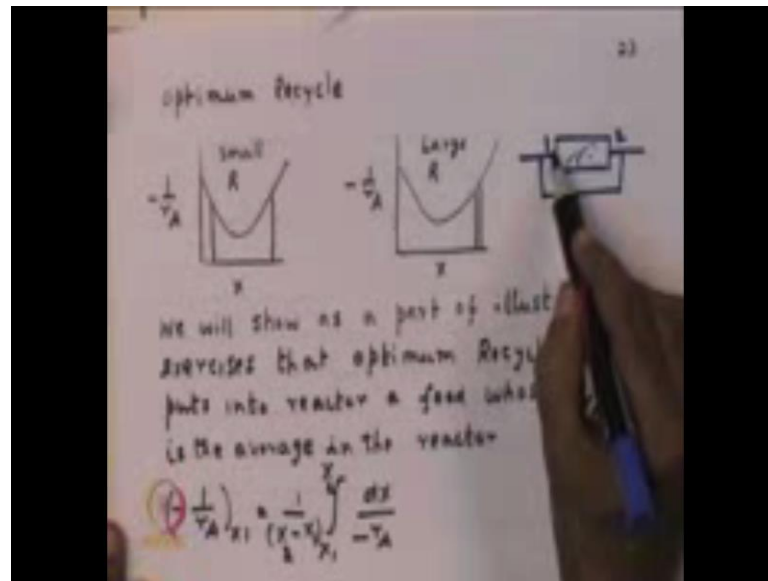 23
optimum Recycle
small
R
-1/rA
x
Large
R
-1/rA
x
1
2
We will show as a part of illust
exercises that optimum Recycl
puts into reactor a feed whos
is the average in the reactor
(-1/rA)x1 = 1/(x2-x1) ∫x1 dx/-rA